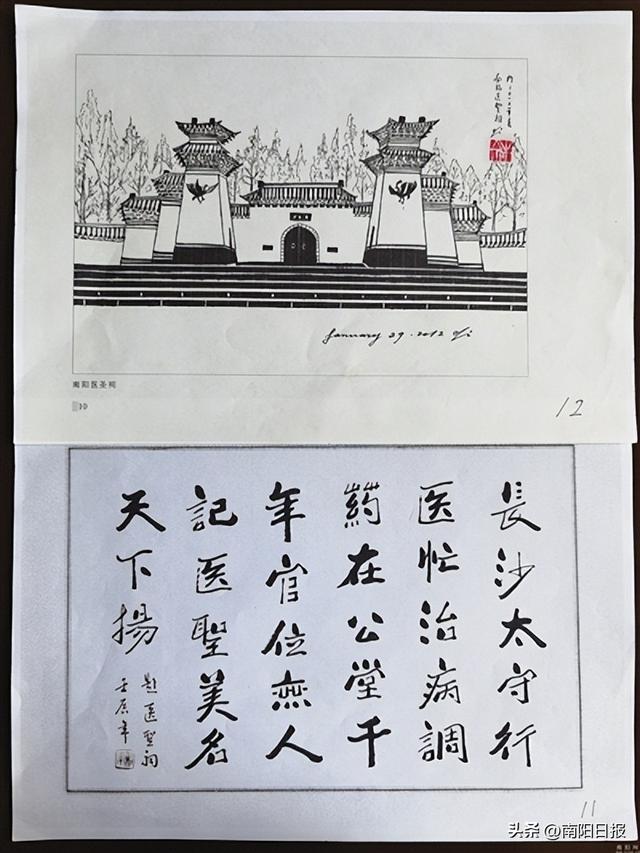 南阳医圣祠
January 29 . 2012
南阳医圣祠
12
長沙太守行
医忙治病調
葯在公堂千
年官位無人
記医聖美名
天下揚
題医聖祠
壬辰年
11
头条 @南阳日报
南阳网